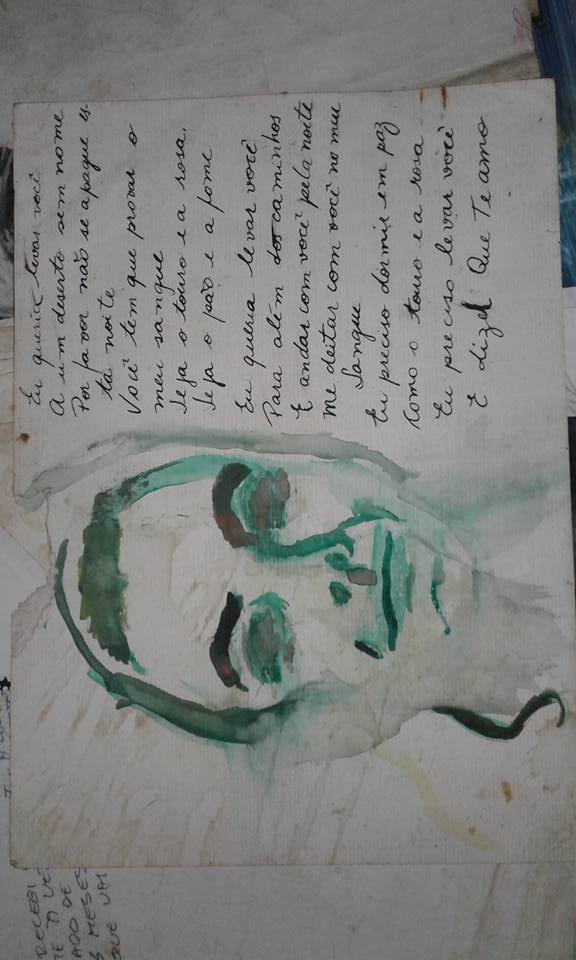 RECEBI
TE TI VE
ADO DE
MESES
QUE UM
Eu queria levar você
A um deserto sem nome
Por favor não se apague es-
ta noite
Você tem que provar o
meu sangue
Seja o touro e a rosa,
Seja o pão e a fome
Eu queria levar você
Para além dos caminhos
E andar com você pela noite
Me deitar com você no meu
Sangue
Eu preciso dormir em paz
Como o touro e a rosa
Eu preciso levar você
E dizer Que Te amo